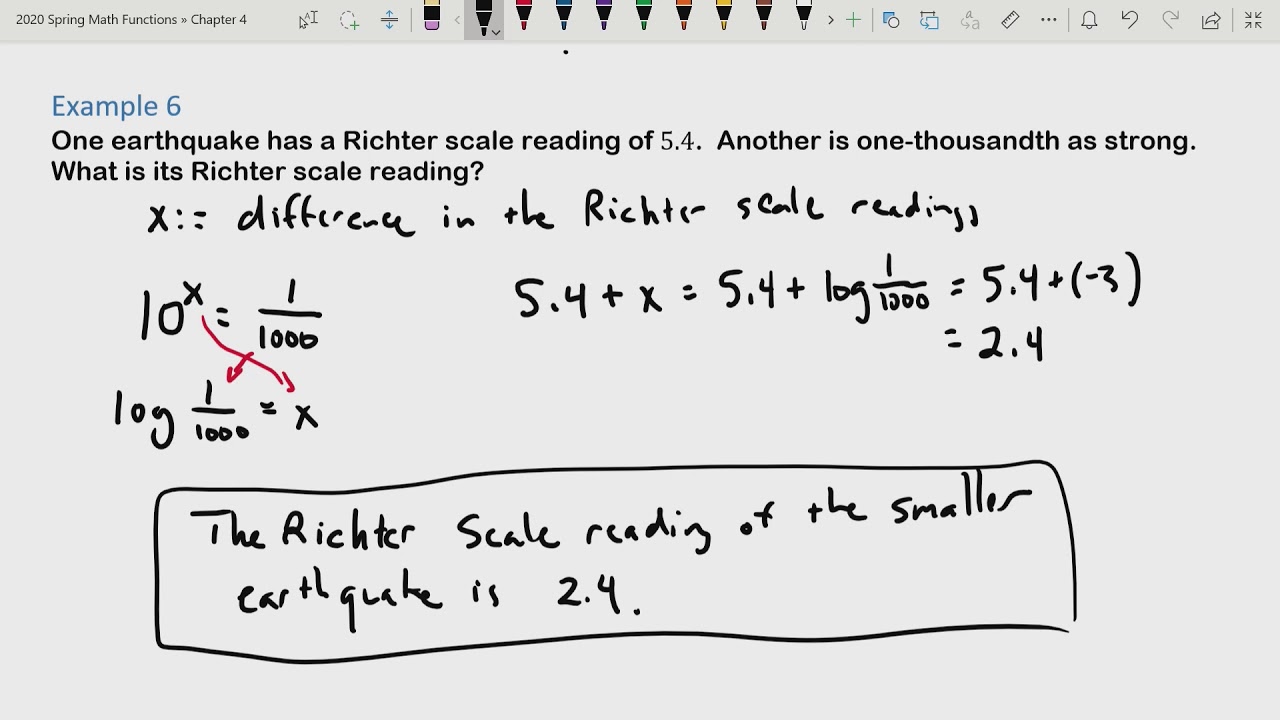 2020 Spring Math Functions » Chapter 4
Example 6
One earthquake has a Richter scale reading of 5.4. Another is one-thousandth as strong.
What is its Richter scale reading?
x:= difference in the Richter scale readings
10^x = 1/1000
5.4 + x = 5.4 + log 1/1000 = 5.4 + (-3)
= 2.4
log 1/1000 = x
The Richter Scale reading of the smaller
earthquake is 2.4.